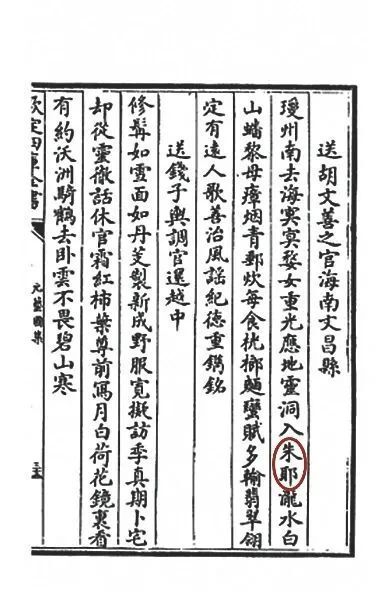 送胡文善之官海南文昌縣
瓊州南去海㝠㝠婺女重光應地靈洞入朱耶瀧水白
山蟠黎母瘴烟青郵炊每食桄榔麵蠻賦多輸翡翠翎
定有遠人歌善治風謡紀徳重鐫銘
送錢子與調官還越中
修髯如雲面如丹芰製新成野服寛擬訪季真期卜宅
却從靈徹話休官霜紅柿葉尊前寫月白荷花鏡裏看
有約沃洲騎鶴去卧雲不畏碧山寒
欽定四庫全書
元藝圃集